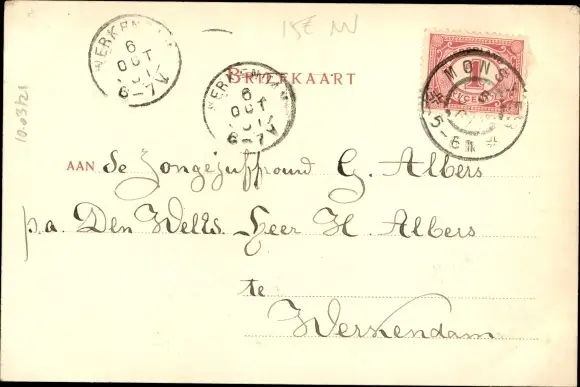 15E NN
WERKENDAM
6
OCT
6-7V
WERKENDAM
6
OCT
6-7V
BRIEFKAART
1
MONSTER
5-6N
10.03/21
AAN de Jongejuffrouw G. Albers
p.a. Den Weled. Heer H. Albers
te
Werkendam